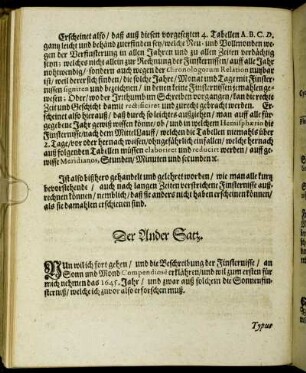 Erscheinet also / daß auß diesen vorgesetzten 4. Tabellen A. B. C. D.
gantz leicht und behänd zuerfinden sey / welche Neu- und Vollmonden we-
gen der Verfinsterung in allen Jahren und zu allen Zeiten verdächtig
seyn; welches nicht allein zur Rechnung der Finsternissen / auff alle Jahr
nohtwendig / sondern auch wegen der Chronologorum Relation nutzbar
ist / weil derer sich finden / die solche Jahr / Monat und Tage mit Finster-
nissen signiren und bezeichnen / in denen keine Finsternissen jemahlen ge-
wesen; Oder / wo der Irrthumb im Schreiben vorgangen / kan die rechte
Zeit und Geschicht damit rectificiret und zurecht gebracht werden. Er-
scheinet also hierauß / daß durch so leichtes außziehen / man auff alle für-
gegebene Jahr gewiß wissen könne / ob / und in welchem Hemisphærio die
Finsternisse / nach dem Mittellauff / welchen die Tabellen niemahls über
2. Tage / vor oder hernach weisen / ohngefährlich einfallen / welche her-
nach auß folgenden Tabellen müssen elaboriret und reduciret werden / auff ge-
wisse Meridianos, Stunden / Minuten und secunden ꝛc.
Ist also bißhero gehandelt und gelehret worden / wie man alle kurtz
bevorstehende / auch nach langen Zeiten verstrichene Finsternisse auß-
rechnen können / nemblich / daß sie anders nicht haben erscheinen können /
als sie damahlen erschienen sind.
Der Ander Satz.
NUn wil ich fort gehen / und die Beschreibung der Finsternisse / an
Sonn und Mond Compendiosè erklähren / und wil zum ersten für
mich nehmen das 1645. Jahr / und zwar auß solchem die Sonnenfin-
sternuß / welche ich zuvor also erforschen muß.
Typus